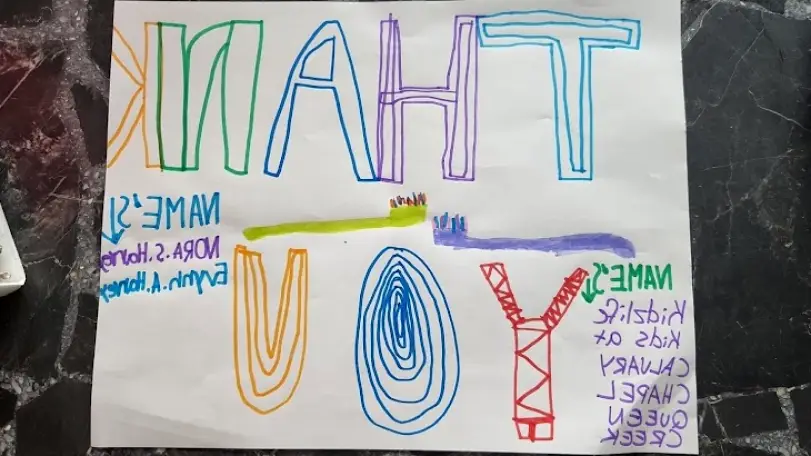 THANK
YOU
NAME'S
Kidzlife
Kids at
CALVARY
CHAPEL
QUEEN
CREEK
NAME'S
NORA.S.